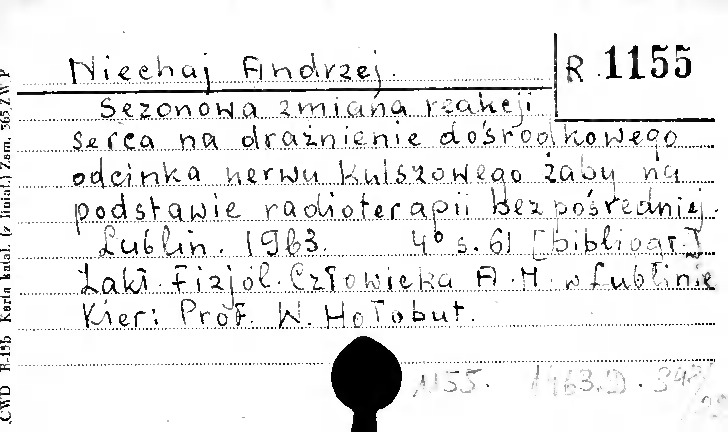 Niechaj Andrzej.
R 1155
Sezonowa zmiana reakcji
serca na drażnienie dośrodkowego
odcinka nerwu kulszowego żaby na
podstawie radioterapii bezpośredniej.
Lublin. 1963. 4° s. 61 [bibliogr.]
Zakł. Fizjol. Człowieka A.M. w Lublinie
Kier: Prof. W. Hołobut.
1155. 1963.D.
CWD E-15b Karta katal. (z liniat.) Zam. 365 ZWP